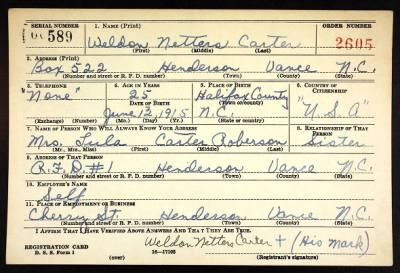 SERIAL NUMBER 1. NAME (Print) ORDER NUMBER
589 Weldon Netters Carter 2605
(First) (Middle) (Last)
2. ADDRESS (Print)
Box 522 Henderson Vance N.C.
(Number and street or R. F. D. number) (Town) (County) (State)
3. TELEPHONE 4. AGE IN YEARS 5. PLACE OF BIRTH 6. COUNTRY OF CITIZENSHIP
"None" 25 Halifax County
DATE OF BIRTH (Town or county)
June 12, 1915 N.C. "U.S.A"
(Exchange) (Number) (Mo.) (Day) (Yr.) (State or country)
7. NAME OF PERSON WHO WILL ALWAYS KNOW YOUR ADDRESS 8. RELATIONSHIP OF THAT PERSON
Mrs. Lula Carter Roberson Sister
(Mr., Mrs., Miss) (First) (Middle) (Last)
9. ADDRESS OF THAT PERSON
R.F.D.#1 Henderson Vance N.C.
(Number and street or R. F. D. number) (Town) (County) (State)
10. EMPLOYER'S NAME
Self
11. PLACE OF EMPLOYMENT OR BUSINESS
Cherry St. Henderson Vance N.C.
(Number and street or R. F. D. number) (Town) (County) (State)
I AFFIRM THAT I HAVE VERIFIED ABOVE ANSWERS AND THAT THEY ARE TRUE.
Weldon Netters Carter + (His Mark)
REGISTRATION CARD
D. S. S. Form 1 16—17105 (Registrant's signature)